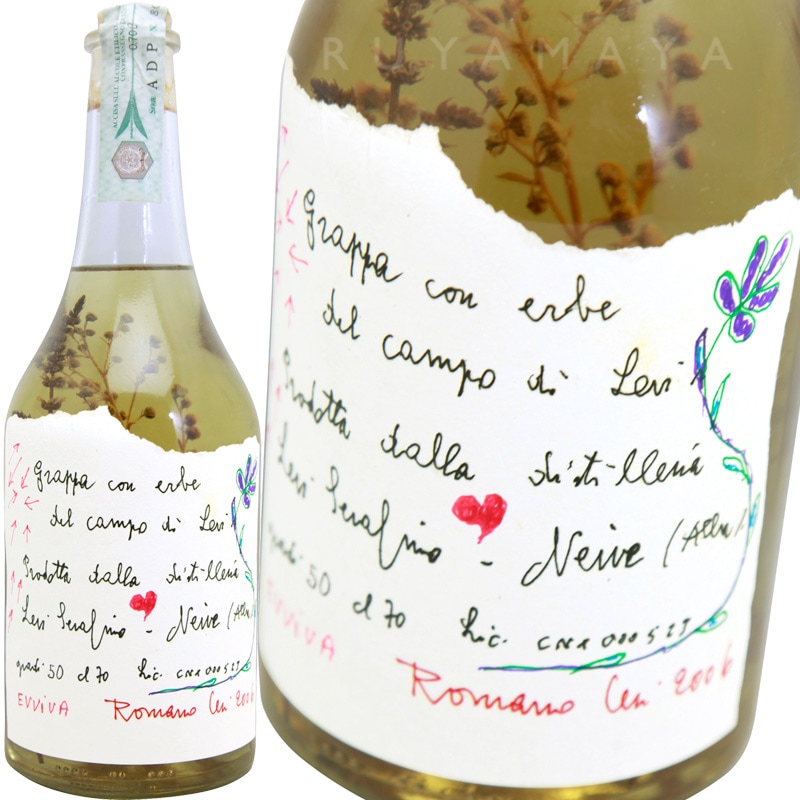 RUYAMAYA
0,70 L
ADP
Grappa con erbe
del campo di Levi
Prodotta dalla distilleria
Levi Serafino - Neive
gradi 50 cl 70 Lic. CNA 000523
EVVIVA Romano Levi 2006
Grappa con erbe
del campo di Levi
Prodotta dalla distilleria
Levi Serafino - Neive
gradi 50 cl 70 Lic.
EVVIVA Romano Levi 2006